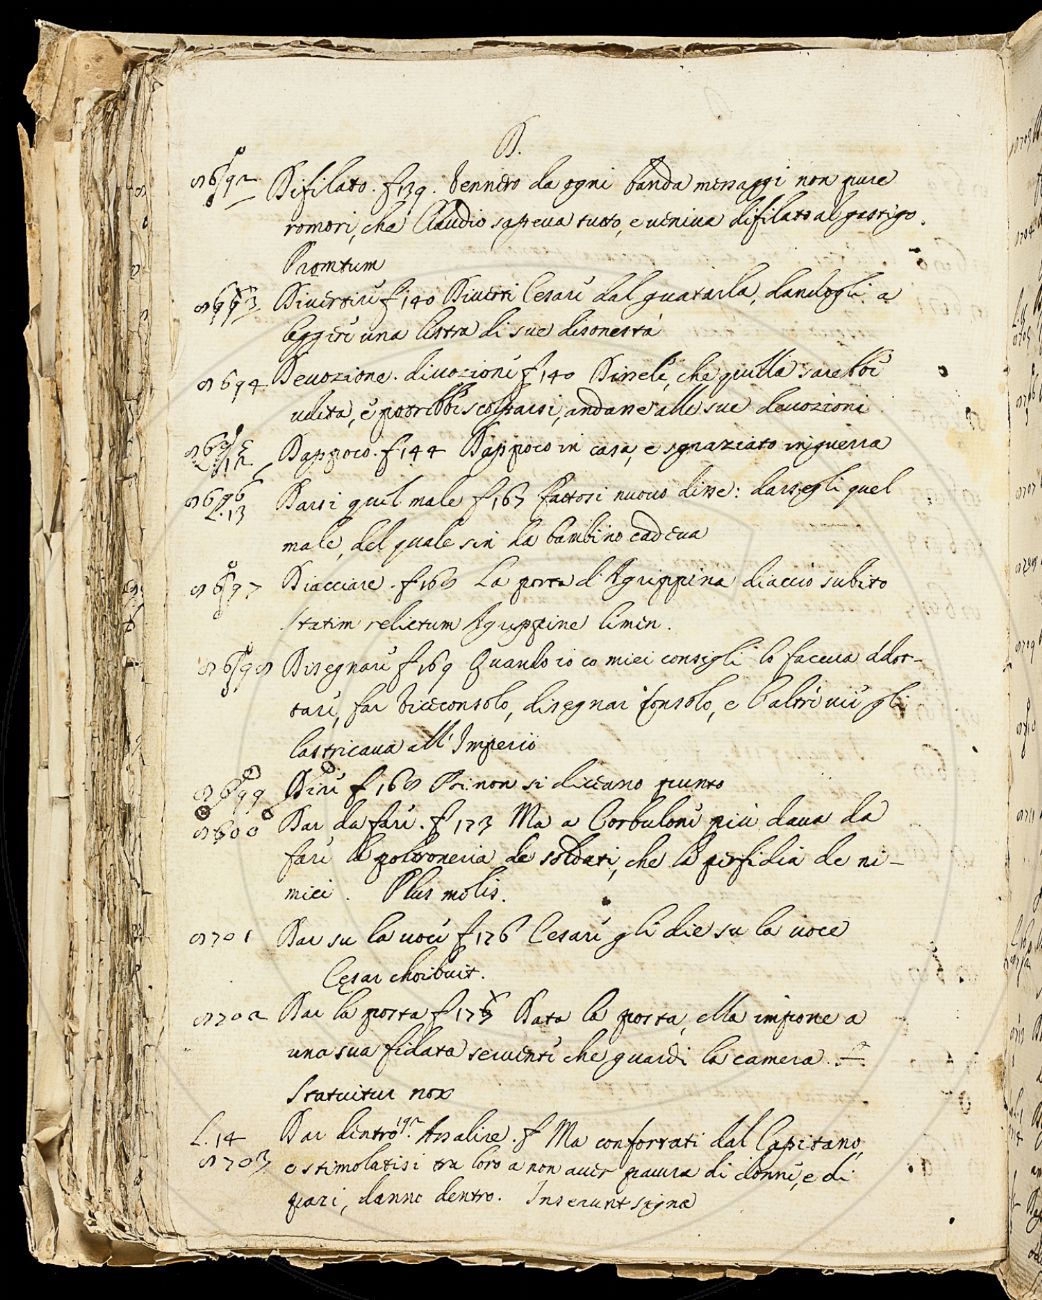 D.
8692 Difilato. f 139. Vennero da ogni banda messaggi non pure
romori, che Claudio sapeva tutto, e veniva difilato al gastigo.
Promtum
8693 Divertire f 140 Diverti Cesare dal guatarla, dandogli a
leggere una listra di sue disonestà
8694 Devozione. divozioni f 140 Dissele, che quella sarebbe
udita, e potrebbe scolparsi, andasse alle sue devozioni
8695 L. 12 Dappoco. f 144 Dappoco in casa, e sgraziato in guerra
8696 L. 13 Darsi quel male f 167 fattosi nuovo disse: darsegli quel
male, del quale sin da bambino cadeva
8697 Diacciare. f 168 La porta d'Agrippina diacciò subito
statim relictum Agrippine limen.
8698 Disegnare f 169 Quando io co miei consigli lo faceva addot-
tare, far viceconsolo, disegnar Consolo, e l'altre vie gli
lastricava all'Imperio
8699 Dire f 168 Poi non si dicano punto
8600 Dar da fare. f 173 Ma a Corbulone più dava da
fare la poltroneria de soldati, che la perfidia de ni-
mici. Plus molis.
8701 Dar su la voce f 176 Cesare gli die su la voce
Cesar choibuit.
8702 Dar la posta f 178 Data la posta, ella impone a
una sua fidata servente che guardi la camera.
Statuitur nox
L. 14 Dar dentro. Assalire. f Ma confortati dal Capitano,
8703 e stimolatisi tra loro a non aver paura di donne, e di
pazi, danno dentro. Inserunt signa